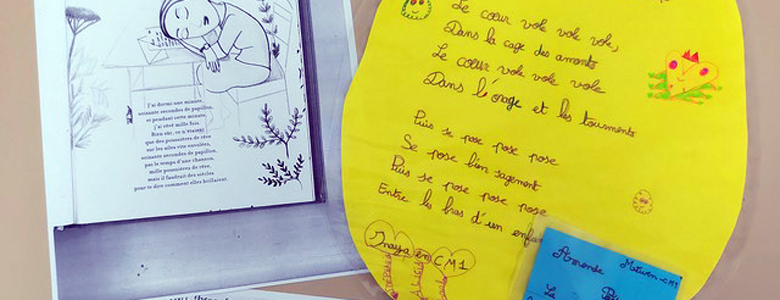 J'ai dormi une minute,
soixante secondes de papillon,
et pendant cette minute,
j'ai rêvé mille fois.
Bien sûr, ce n'étaient
que des poussières de rêve
sur les ailes vite envolées,
soixante secondes de papillon,
pas le temps d'une chanson,
mille poussières de rêve,
mais il faudrait des siècles
pour te dire comment elles brillaient.
Le cœur vole vole vole,
Dans la cage des amants
Le cœur vole vole vole
Dans l'orage et les tourments
Puis se pose pose pose
Se pose bien sagement
Puis se pose pose pose
Entre les bras d'un enfan
Inaya en CM1
Amande
CM1
La